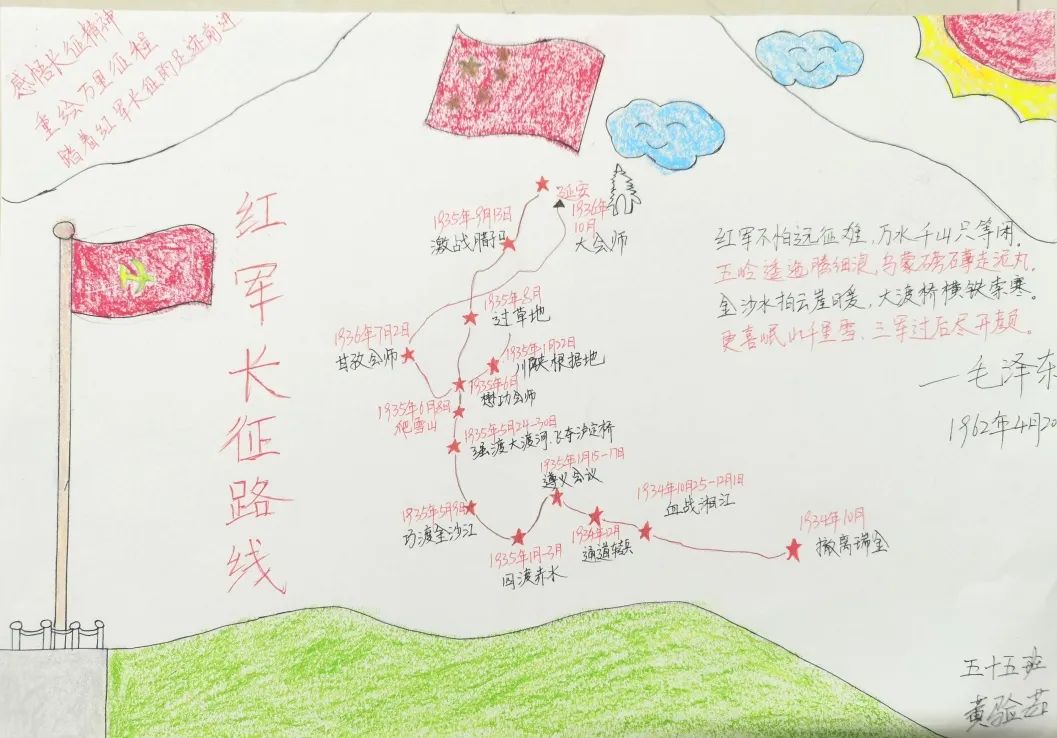 感悟长征精神
重绘万里征程
踏着红军长征的足迹前进
红军长征路线
延安
1936年
10月
大会师
1935年9月13日
激战腊子
1935年8月
过草地
1936年7月2日
甘孜会师
1935年1月22日
川陕根据地
1935年6月
懋功会师
1935年6月8日
爬雪山
1935年5月24-30日
强渡大渡河.飞夺泸定桥
1935年1月15-17日
遵义会议
1935年5月9日
巧渡金沙江
1935年1月-3月
四渡赤水
1934年12月
通道转兵
1934年10月25-12月1日
血战湘江
1934年10月
撤离瑞金
红军不怕远征难,万水千山只等闲。
五岭逶迤腾细浪,乌蒙磅礴走泥丸。
金沙水拍云崖暖,大渡桥横铁索寒。
更喜岷山千里雪,三军过后尽开颜。
—毛泽东
1962年4月20
五十五班
黄